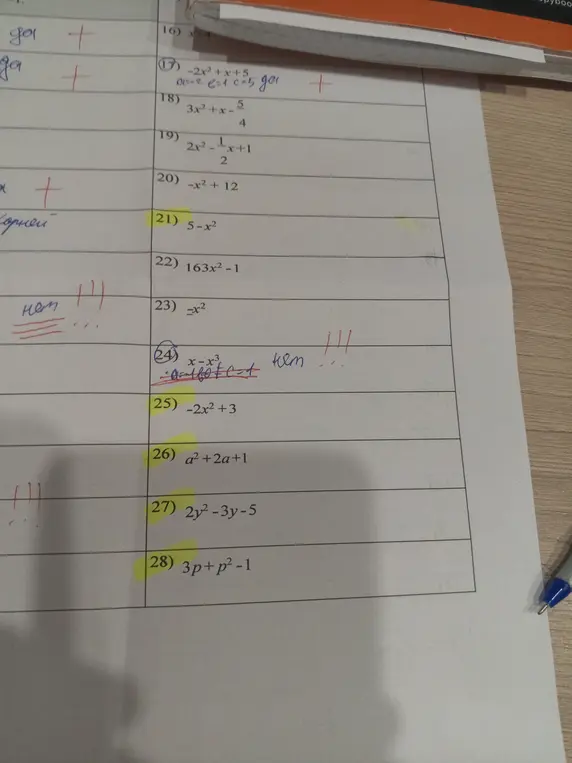 да +
16)
да +
17) -2x² + x + 5
a=-2 b=1 c=5 да +
18) 3x² + x - 5/4
19) 2x² - 1/2 x + 1
+
20) -x² + 12
21) 5 - x²
22) 163x² - 1
нет !!!
23) -x²
24) x - x³
нет !!!
25) -2x² + 3
26) a² + 2a + 1
!!!
27) 2y² - 3y - 5
28) 3p + p² - 1